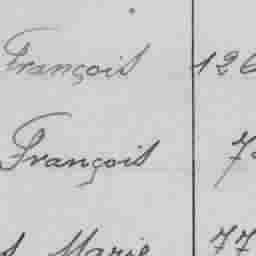 François 126
François 7
s Marie 77